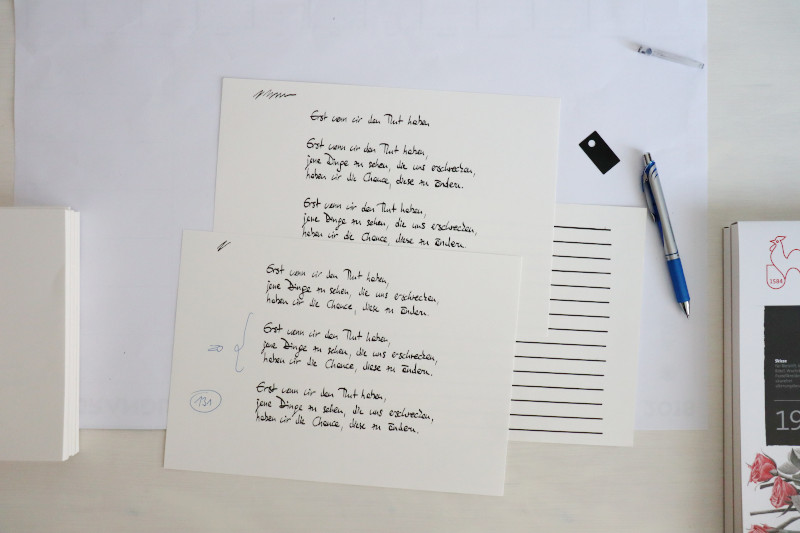 Erst wenn wir den Mut haben
Erst wenn wir den Mut haben,
jene Dinge zu sehen, die uns erschrecken,
haben wir die Chance, diese zu ändern.
Erst wenn wir den Mut haben,
jene Dinge zu sehen, die uns erschrecken,
haben wir die Chance, diese zu ändern.
Erst wenn wir den Mut haben,
jene Dinge zu sehen, die uns erschrecken,
haben wir die Chance, diese zu ändern.
Erst wenn wir den Mut haben,
jene Dinge zu sehen, die uns erschrecken,
haben wir die Chance, diese zu ändern.
131
Erst wenn wir den Mut haben,
jene Dinge zu sehen, die uns erschrecken,
haben wir die Chance, diese zu ändern.
1584
19